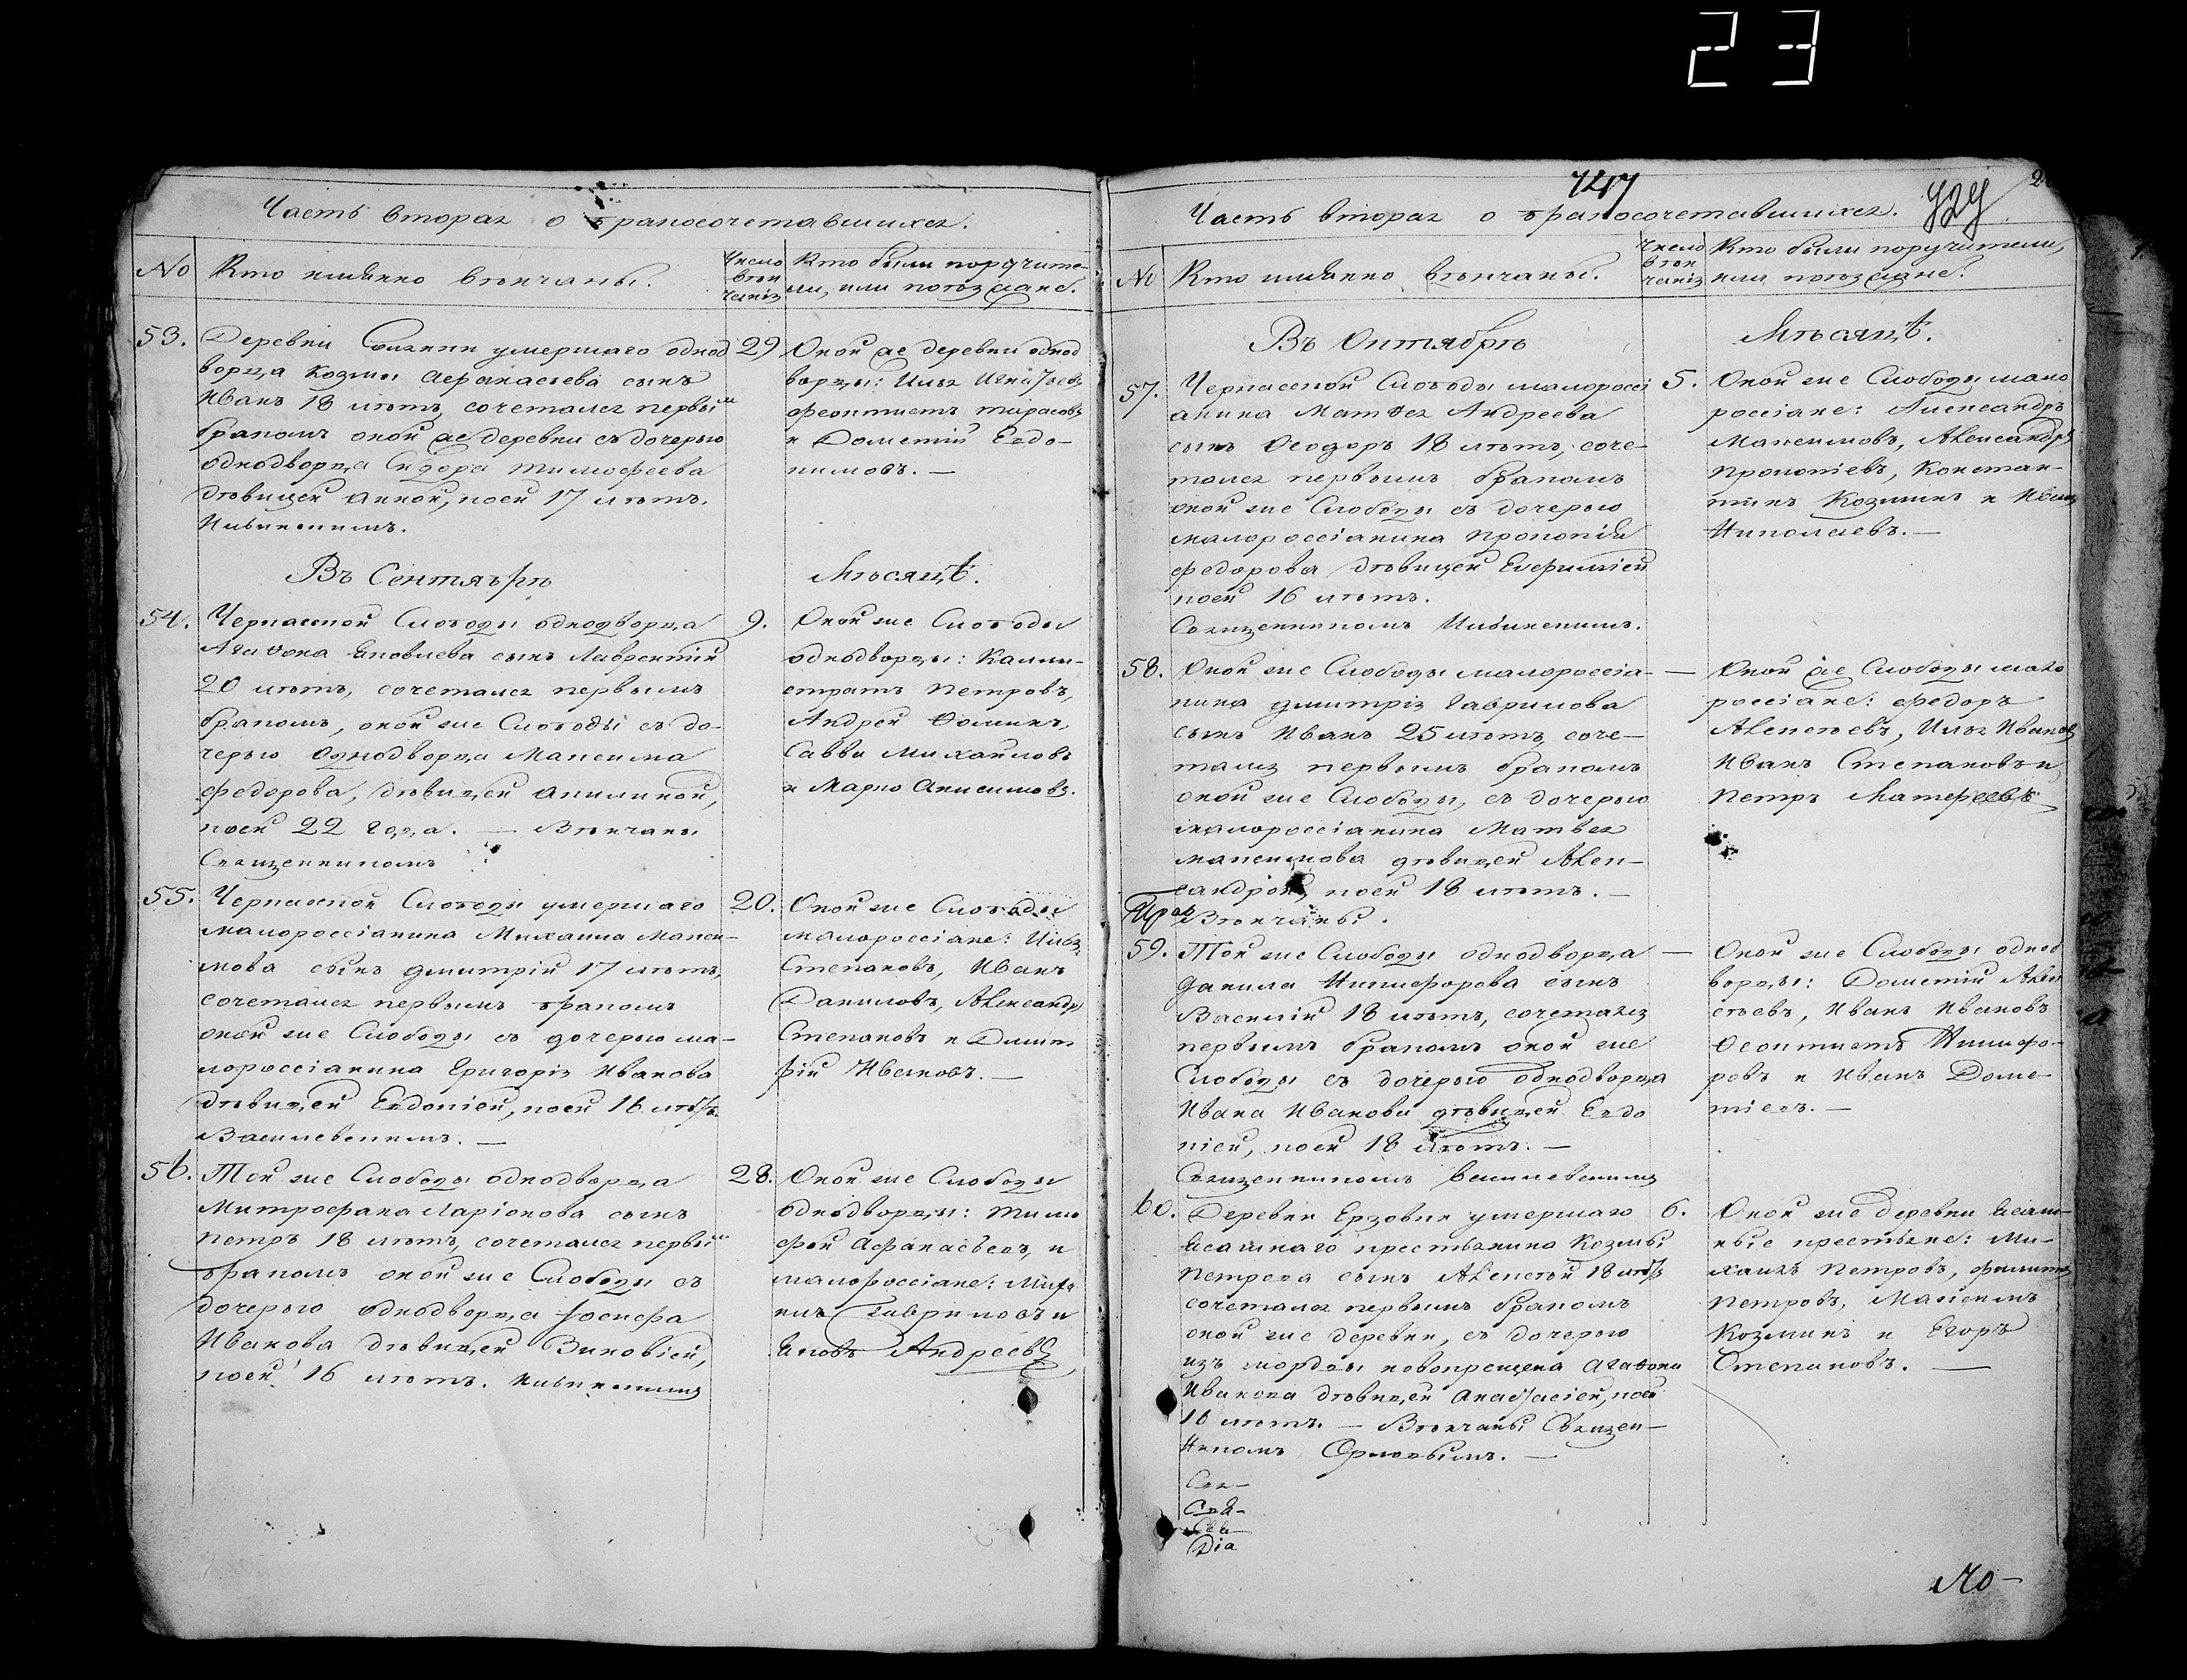 23
Часть вторая о бракосочетавшихся.
No
Кто имянно венчаны.
Число
вѣн
чанія
Кто были поручите-
ли, или поѣзжане.
53.
Деревни умершаго однод
ворца Козмы Афанасьева сынъ
Иванъ 18 лѣтъ, сочетался первы м
бракомъ оной же деревни съ дочерью
однодворца Сидора Тимофеева
дѣвицей Анной, коей 17 лѣтъ.
29
Оной же деревни однод
ворцы: Илья Игнатьевъ
Феоктистъ Тарасовъ
и Дометій Евдо-
кимовъ. —
Въ Сентябрѣ
Мѣсяцѣ.
54.
Черкасской Слободы однодворца
Агаѳона Яковлева сынъ Лаврентій
20 лѣтъ, сочетался первымъ
бракомъ, оной же Слободы съ до-
черью однодворца Максима
Федорова, дѣвицей Акилиной,
коей 22 года. — Вѣнчаны
Священникомъ
9.
Оной же Слободы
однодворцы: Калли-
стратъ Петровъ,
Андрей Ѳоминъ,
Савва Михайловъ
и Марко Анисимовъ.
55.
Черкасской Слободы умершаго
малороссіанина Михаила Макси-
мова сынъ Димитрій 17 лѣтъ,
сочетался первымъ бракомъ
оной же Слободы съ дочерью ма-
лороссіанина Григорія Иванова
дѣвицей Евдокіей, коей 16 лѣтъ
Василевскимъ. —
20.
Оной же Слободы
малороссіане: Илья
Степановъ, Иванъ
Даниловъ, Александръ
Степановъ и Димит
рій Ивановъ. —
56.
Той же Слободы однодворца
Митрофана Ларіонова сынъ
Петръ 18 лѣтъ, сочетался первы м
бракомъ оной же Слободы съ
дочерью однодворца Іосифа
Иванова дѣвицей Зиновіей,
коей 16 лѣтъ.
28.
Оной же Слободы
однодворцы: Тимо
фей Афанасьевъ, и
малороссіане:
Гавриловъ и
Яковъ Андреевъ
747
Часть вторая о бракосочетавшихся.
No
Кто имянно вѣнчаны.
Число
вѣн
чанія
Кто были поручители,
или поѣзжане.
Въ Октябрѣ
Мѣсяцѣ.
57.
Черкасской Слободы малороссі
анина Матѳея Андреева
сынъ Ѳеодоръ 18 лѣтъ, соче-
тался первымъ бракомъ
оной же Слободы съ дочерью
малороссіанина Прокопія
Федорова дѣвицей Евфиміей
коей 16 лѣтъ.
Священникомъ
5.
Оной же Слободы мало
россіане: Александръ
Максимовъ, Александръ
Прокопіевъ, Констан-
тинъ Козминъ и Иванъ
Николаевъ. —
58.
Оной же Слободы малороссіа-
нина Димитрія Гаврилова
сынъ Иванъ 25 лѣтъ, соче-
тался первымъ бракомъ
оной же Слободы, съ дочерью
малороссіанина Матвея
Максимова дѣвицей Алек-
сандрой, коей 18 лѣтъ. —
Вѣнчаны.
—
Оной же Слободы мало
россіане: Федоръ
Алексѣевъ, Илья Ивановъ
Иванъ Степановъ и
Петръ Матфеевъ
59.
Той же Слободы однодворца
Данила Никифорова сынъ
Василій 18 лѣтъ, сочетался
первымъ бракомъ оной же
Слободы съ дочерью однодворца
Ивана Иванова дѣвицей Евдо
кіей, коей 18 лѣтъ. —
Священникомъ Василевскимъ
—
Оной же Слободы однод
ворцы: Дометій Алек
сѣевъ, Иванъ Ивановъ
Ѳеоктистъ Никифо-
ровъ и Иванъ Доме-
тіевъ. —
60.
Деревни Ерзовки умершаго
Ясашнаго крестьянина Козмы
Петрова сынъ Алексѣй 18 лѣтъ
сочетался первымъ бракомъ
оной же деревни, съ дочерью
изъ мордвы новокрещена Агафона
Иванова дѣвицей Анастасіей, коей
16 лѣтъ. — Вѣнчаны Священ-
никомъ Орловымъ. —
6.
Оной же деревни Ясаш-
ные крестьяне: Ми-
хаилъ Петровъ, Филиппъ
Петровъ, Максимъ
Козминъ и Егоръ
Степановъ. —
Свя-
Діа